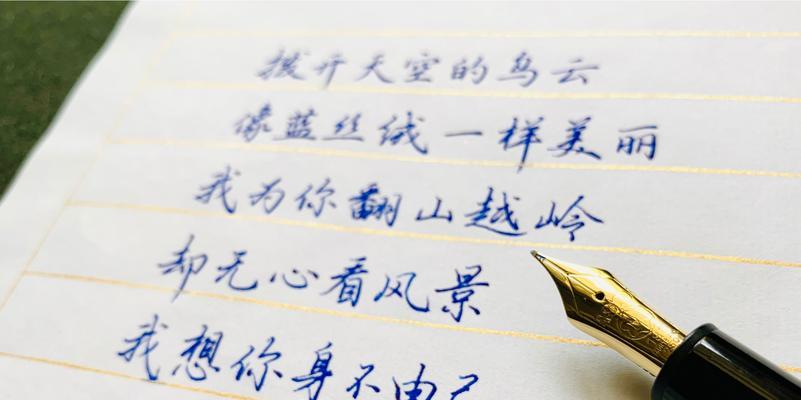 拨开天空的乌云
像蓝丝绒一样美丽
我为你翻山越岭
却无心看风景
我想你身不由己